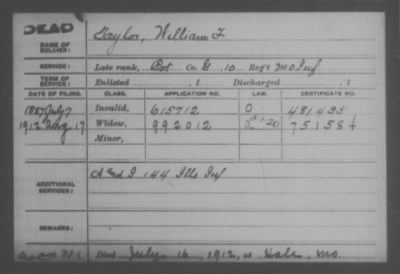 DEAD
NAME OF SOLDIER: Taylor, William F
SERVICE: Late rank, Pvt Co. G, 10 Reg't Mo Inf
TERM OF SERVICE: Enlisted , 1 Discharged , 1
DATE OF FILING. CLASS. APPLICATION NO. LAW. CERTIFICATE NO.
1887 July 7 Invalid, 615712 O 481435
1912 Aug. 17 Widow, 992012 751584
Minor,
ADDITIONAL SERVICES: A and I 144 Ills Inf
REMARKS:
Died July 16, 1912, at Hale, Mo.